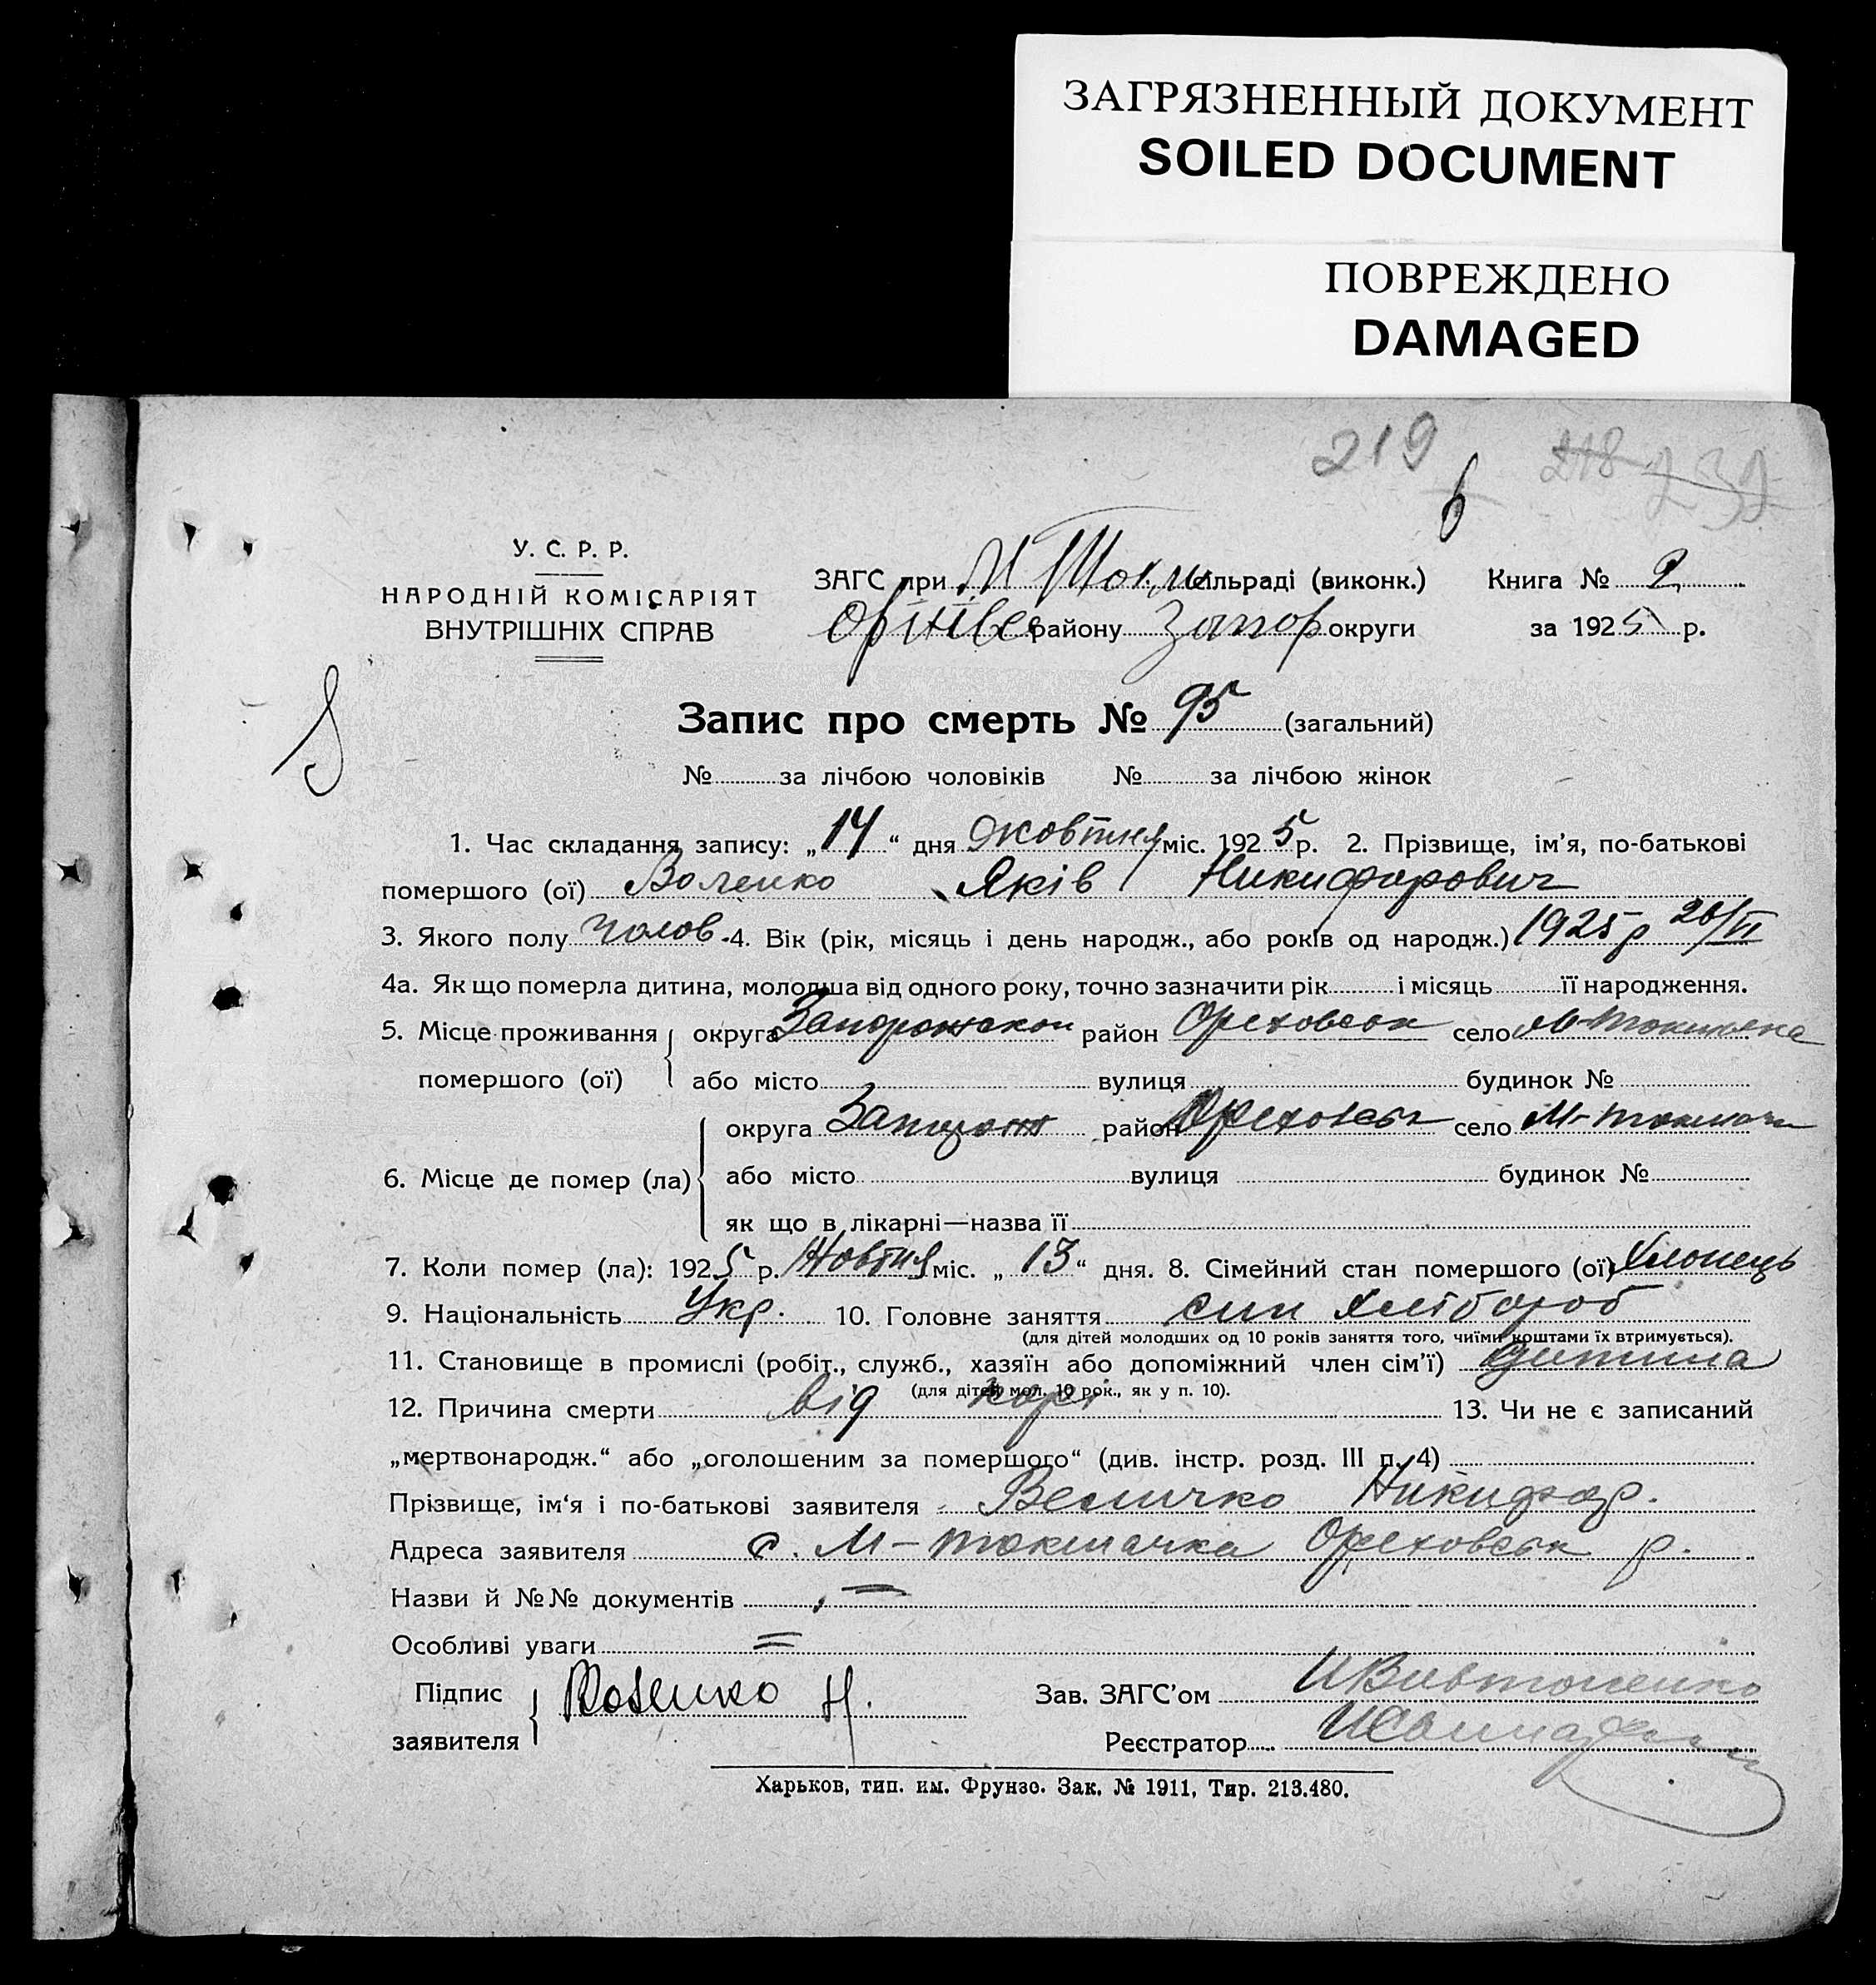 ЗАГРЯЗНЕННЫЙ ДОКУМЕНТ
SOILED DOCUMENT
ПОВРЕЖДЕНО
DAMAGED
219 218 232
6
У. С. Р. Р.
НАРОДНІЙ КОМІСАРІЯТ
ВНУТРІШНІХ СПРАВ
ЗАГС при М Ток сільраді (виконк.) Книга № 2
Оріхівс району Запор округи за 1925 р.
Запис про смерть № 95 (загальний)
№ за лічбою чоловіків № за лічбою жінок
1. Час складання запису: „14“ дня Жовтня міс. 1925 р. 2. Прізвище, ім'я, по-батькові
помершого (ої) Воленко Яків Никифорович
3. Якого полу чолов. 4. Вік (рік, місяць і день народж., або років од народж.) 1925 р 26/VI
4а. Як що померла дитина, молодша від одного року, точно зазначити рік і місяць її народження.
5. Місце проживання округа Запорожской район Ореховськ село М-Токмачка
помершого (ої) або місто вулиця будинок №
округа Запорож район Ореховськ село М-Токмачк
6. Місце де помер (ла) або місто вулиця будинок №
як що в лікарні—назва її
7. Коли помер (ла): 1925 р. Жовтня міс. „13“ дня. 8. Сімейний стан помершого (ої) Хлопець
9. Національність Укр. 10. Головне заняття син Хлібороб
(для дітей молодших од 10 років заняття того, чиїми коштами їх втримується).
11. Становище в промислі (робіт., служб., хазяїн або допоміжний член сім'ї) дитина
(для дітей мол. 10 рок., як у п. 10).
12. Причина смерти від корі 13. Чи не є записаний
„мертвонародж.“ або „оголошеним за помершого“ (див. інстр. розд. III п. 4)
Прізвище, ім'я і по-батькові заявителя Величко Никифор.
Адреса заявителя с. М-Токмачка Ореховськ р.
Назви й №№ документів —
Особливі уваги =
Підпис
заявителя Воленко Н.
Зав. ЗАГС'ом
Реєстратор
Харьков, тип. им. Фрунзе. Зак. № 1911, Тир. 213.480.